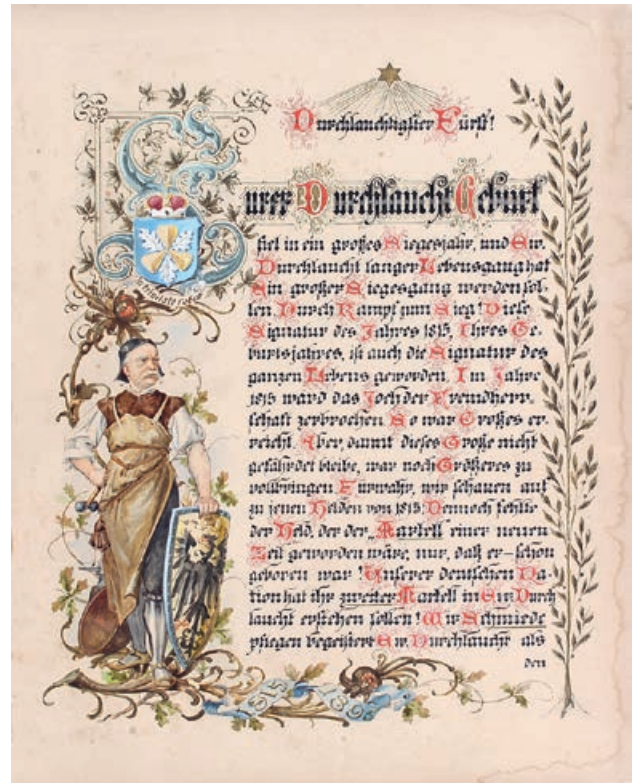 Durchlauchtigster Fürst!
Eurer Durchlaucht Geburt
fiel in ein großes Siegesjahr, und Ew.
Durchlaucht langer Lebensgang hat
Ein großer Siegesgang werden sol-
len. Durch Kampf zum Sieg! Diese
Signatur des Jahres 1815, Ihres Ge-
burtsjahres, ist auch die Signatur des
ganzen Lebens geworden. Im Jahre
1815 ward das Joch der Fremdherr-
schaft zerbrochen. So war Großes er-
reicht. Aber, damit dieses Große nicht
gefährdet bleibe, war noch Größeres zu
vollbringen. Fürwahr, wir schauen auf
zu jenen Helden von 1815; Dennoch fehlte
der Held, der der „Martell einer neuen
Zeit geworden wäre, nur, daß er – schon
geboren war! Unserer deutschen Na-
tion hat ihr zweiter Martell in Ew. Durch
laucht erstehen sollen! Wir Schmiede
pflegen begeistert Ew. Durchlaucht als
den
in trinitate robur
1815